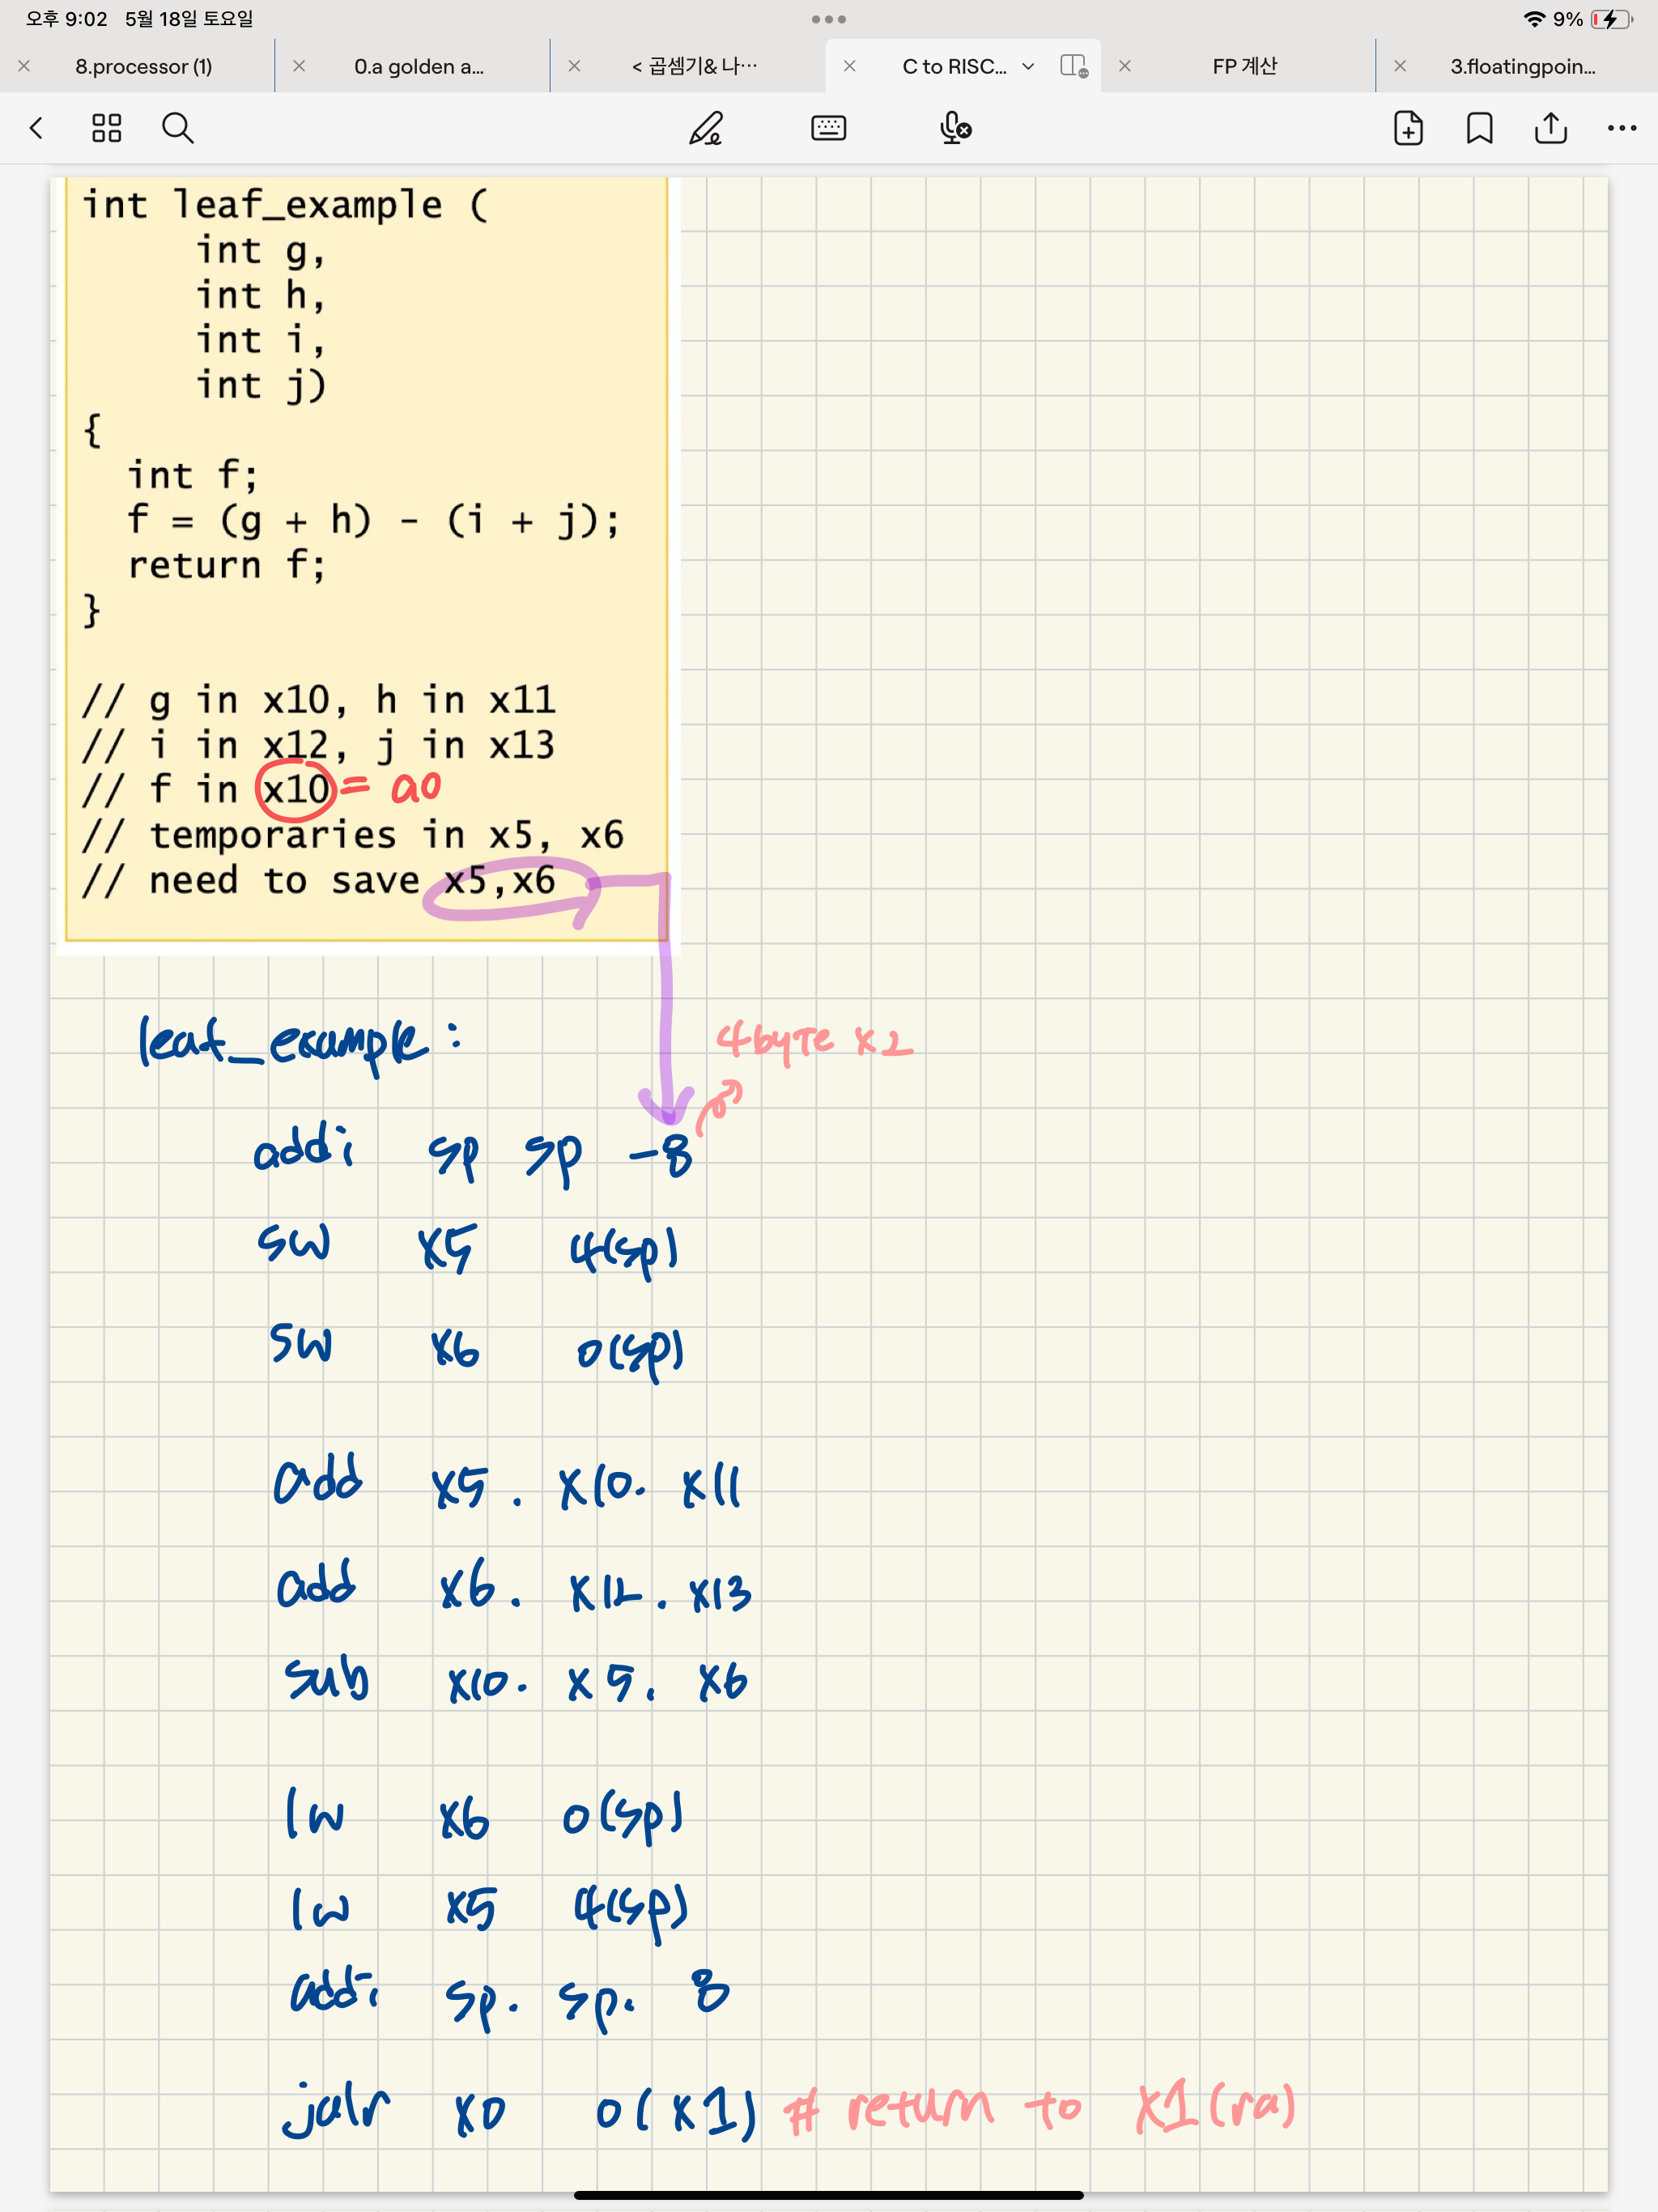 오후 9:02 5월 18일 토요일 9%
8.processor (1) 0.a golden a... < 곱셈기& 나… C to RISC... FP 계산 3.floatingpoin...
int leaf_example (
int g,
int h,
int i,
int j)
{
int f;
f = (g + h) - (i + j);
return f;
}
// g in x10, h in x11
// i in x12, j in x13
// f in x10 = a0
// temporaries in x5, x6
// need to save x5,x6
leaf_example :
4byte x2
addi sp sp -8
sw x5 4(sp)
sw x6 0(sp)
add x5. x10. x11
add x6. x12. x13
sub x10. x5. x6
lw x6 0(sp)
lw x5 4(sp)
addi sp. sp. 8
jalr x0 0(x1) # return to x1(ra)